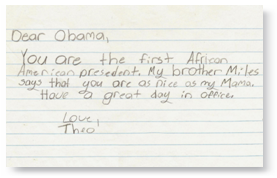 Dear Obama,
You are the first African
American presedent. My brother Miles
says that you are as nice as my Mama.
Have a great day in office.
Love,
Theo